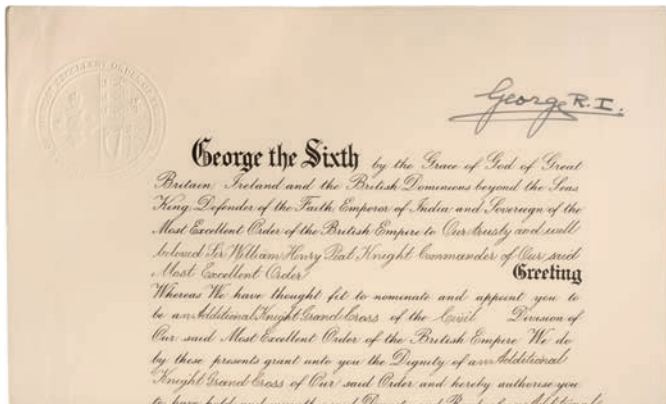 George R.I.
George the Sixth by the Grace of God of Great
Britain, Ireland and the British Dominions beyond the Seas
King, Defender of the Faith, Emperor of India and Sovereign of the
Most Excellent Order of the British Empire to Our trusty and well
beloved Sir William Henry Peat Knight Commander of Our said
Most Excellent Order Greeting
Whereas We have thought fit to nominate and appoint you to
be an Additional Knight Grand Cross of the Civil Division of
Our said Most Excellent Order of the British Empire We do
by these presents grant unto you the Dignity of an Additional
Knight Grand Cross of Our said Order and hereby authorise you
to have hold and